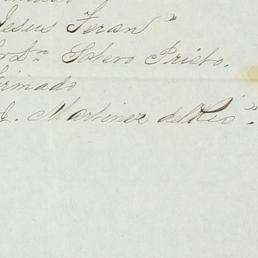 Jesus Teran"
Dn. Sotero Prieto.
Firmado
J. Martinez del Rio".